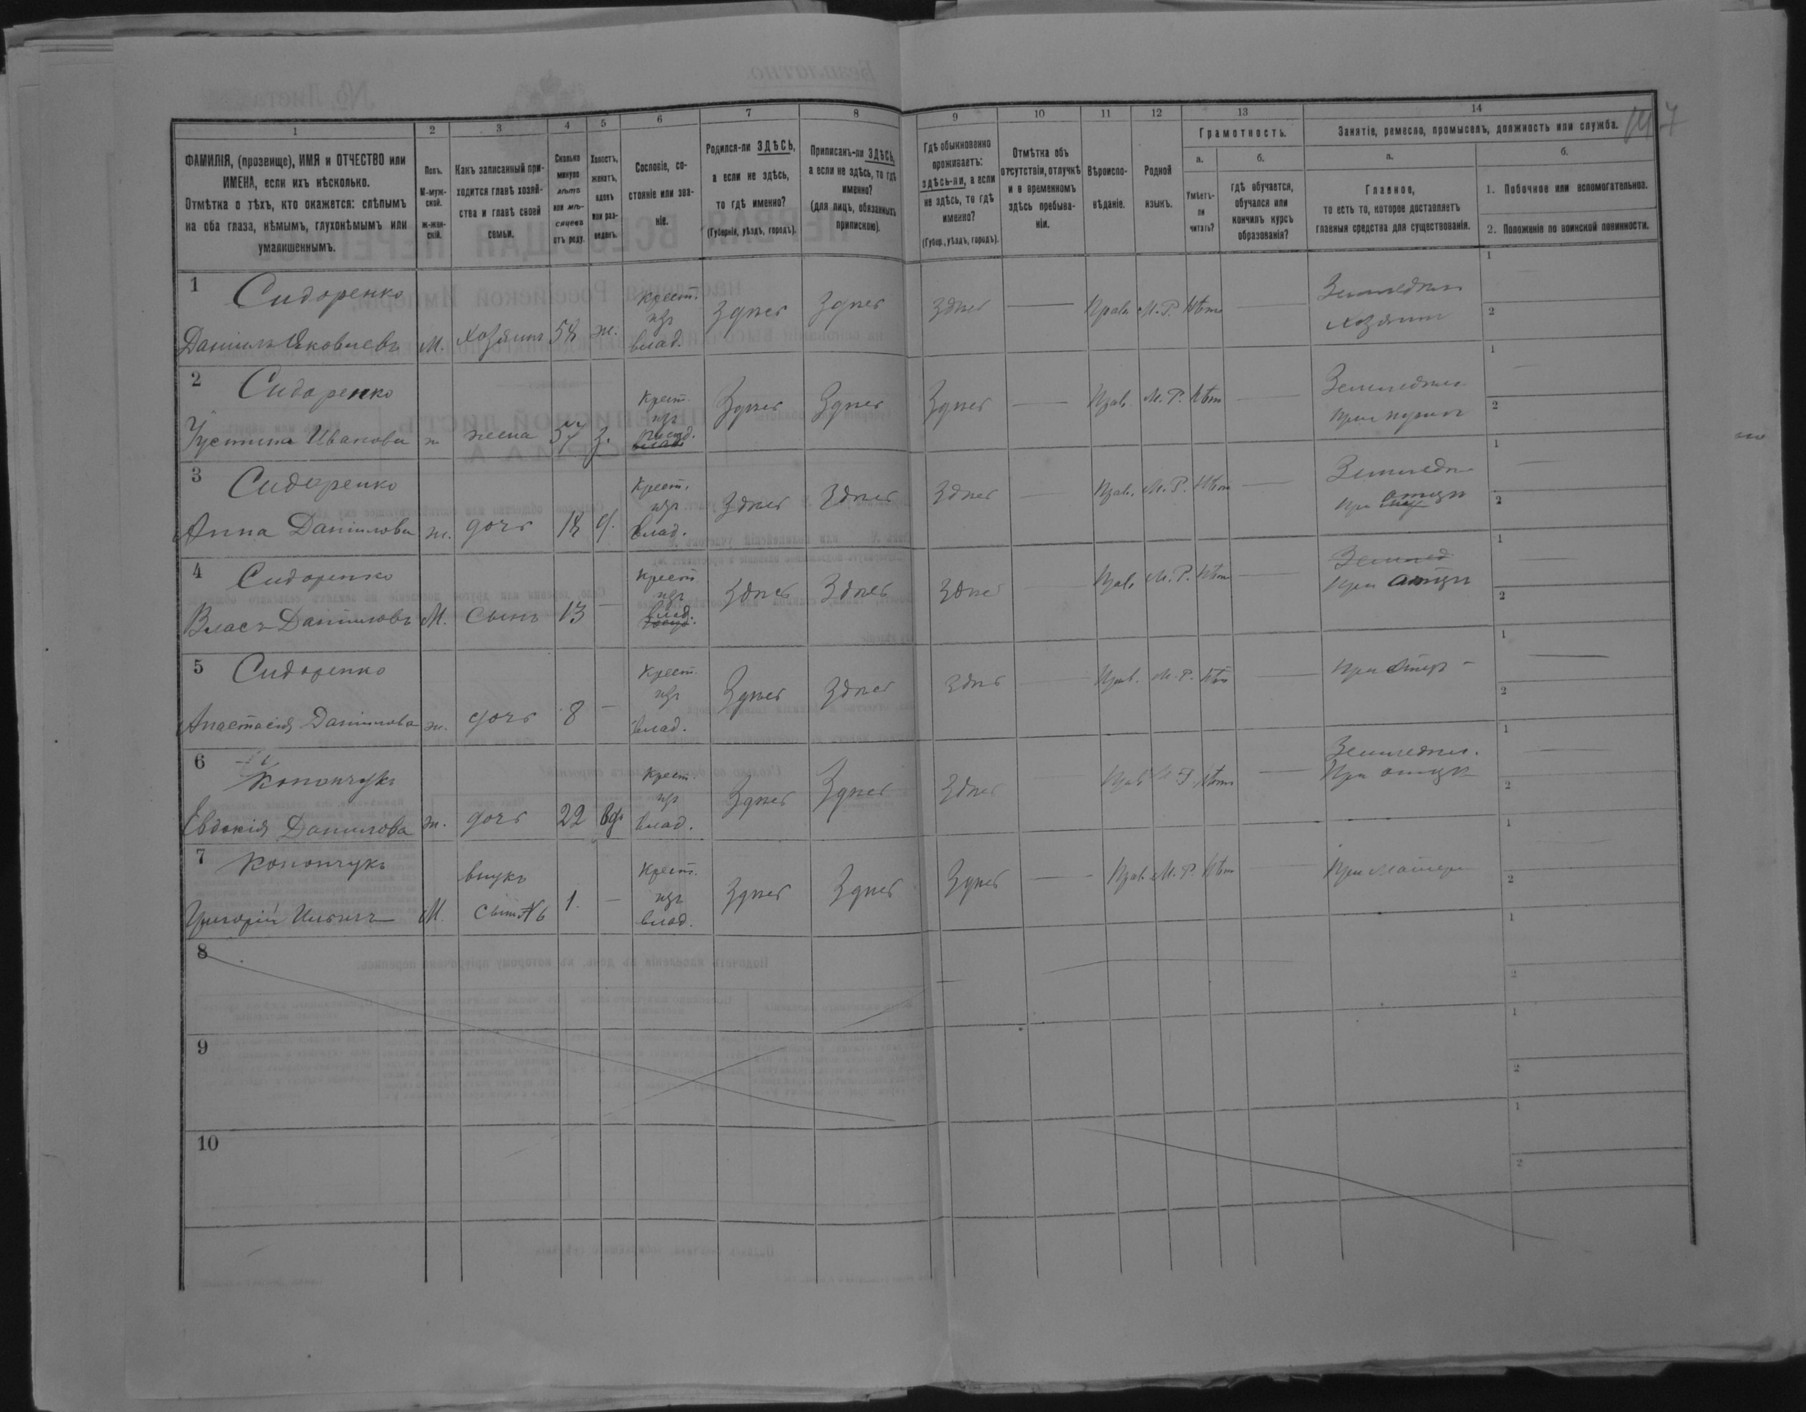 1 2 3 4 5 6 7 8 9 10 11 12 13 14
ФАМИЛІЯ, (прозвище), ИМЯ и ОТЧЕСТВО или ИМЕНА, если ихъ нѣсколько.
Отмѣтка о тѣхъ, кто окажется: слѣпымъ на оба глаза, нѣмымъ, глухонѣмымъ или умалишеннымъ.
Полъ.
М-муж-
ской.
ж-жен-
скій.
Какъ записанный при-
ходится главѣ хозяй-
ства и главѣ своей
семьи.
Сколько
минуло
лѣтъ
или мѣ-
сяцевъ
отъ роду.
Холостъ,
женатъ,
вдовъ
или раз-
веденъ.
Сословіе, со-
стояніе или зва-
ніе.
Родился-ли ЗДѢСЬ,
а если не здѣсь,
то гдѣ именно?
(Губернія, уѣздъ, городъ).
Приписанъ-ли ЗДѢСЬ,
а если не здѣсь, то гдѣ
именно?
(для лицъ, обязанныхъ
припискою).
Гдѣ обыкновенно
проживаетъ:
здѣсь-ли, а если
не здѣсь, то гдѣ
именно?
(Губер., уѣздъ, городъ).
Отмѣтка объ
отсутствіи, отлучкѣ
и о временномъ
здѣсь пребыва-
ніи.
Вѣроиспо-
вѣданіе.
Родной
языкъ.
Грамотность.
а.
Умѣетъ-
ли
читать?
б.
гдѣ обучается,
обучался или
кончилъ курсъ
образованія?
Занятіе, ремесло, промыселъ, должность или служба.
а.
Главное,
то есть то, которое доставляетъ
главныя средства для существованія.
б.
1. Побочное или вспомогательное.
2. Положеніе по воинской повинности.
1 Сидоренко
М. хозяинъ 58 ж. Крест. изъ влад. Здѣсь Здѣсь Здѣсь Прав. М.Р. Нѣтъ
хозяинъ
2 Сидоренко
Устинья Иванова ж жена 57 з. Крест. изъ Здѣсь Здѣсь Здѣсь Прав. М.Р. Нѣтъ
3 Сидоренко
Анна Даніилова ж. дочь 18 д. Крест. изъ влад. Здѣсь Здѣсь Здѣсь Прав. М.Р. Нѣтъ
При отцѣ
4 Сидоренко
Власъ Даніиловъ М. сынъ 13 Крест. изъ влад. Здѣсь Здѣсь Здѣсь Прав М.Р. Нѣтъ
При отцѣ
5 Сидоренко
Анастасія Даніилова ж. дочь 8 Крест. изъ влад. Здѣсь Здѣсь Здѣсь Прав. М.Р. Нѣтъ При отцѣ
6 Конончукъ
Евдокія Данилова ж. дочь 22 вд. Крест изъ влад. Здѣсь Здѣсь Здѣсь Прав Нѣтъ
При отцѣ
7 Конончукъ
внукъ
Григорій М. сынъ №6 1. Крест. изъ влад. Здѣсь Здѣсь Здѣсь Прав М.Р Нѣтъ При матери
8
9
10